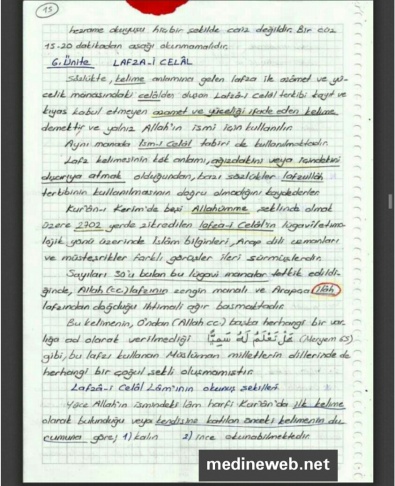 15
hezrame okuyuşu hiçbir şekilde caiz değildir. Bir cüz
15-20 dakikadan aşağı okunmamalıdır.
6. Ünite LAFZA-İ CELÂL
Sözlükte, kelime anlamına gelen lafza ile azamet ve yü-
celik manasındaki celâlden oluşan Lafza-i Celâl terkibi kayıt ve
kıyas kabul etmeyen azamet ve yüceliği ifade eden kelime
demektir ve yalnız Allah'ın ismi için kullanılır.
Aynı manada İsm-i Celâl tabiri de kullanılmaktadır.
Lafz kelimesinin kök anlamı, ağızdakini veya içindekini
dışarıya atmak olduğundan, bazı sözlükler lafzullâh
terkibinin kullanılmasının doğru olmadığını kaydederler.
Kur'ân-ı Kerim'de beşi Allahümme şeklinde olmak
üzere 2702 yerde zikredilen lafza-i Celâl'in lügavi/etimo-
lojik yönü üzerinde İslâm bilginleri, Arap dili uzmanları
ve müsteşrikler farklı görüşler ileri sürmüşlerdir.
Sayıları 30'u bulan bu lügavi manalar tetkik edildi-
ğinde, Allah (cc) lafzının zengin manalı ve Arapça ilâh
lafzından doğduğu ihtimali ağır basmaktadır.
Bu kelimenin, O'ndan (Allah cc) başka herhangi bir var-
lığa ad olarak verilmediği هَلْ تَعْلَمُ لَهُ سَمِيًّا (Meryem 65)
gibi, bu lafzı kullanan Müslüman milletlerin dillerinde de
herhangi bir çoğul şekli oluşmamıştır.
Lafza-i Celâl Lâm'ının okunuş şekilleri
Yüce Allah'ın ismindeki lâm harfi Kur'ân'da ilk kelime
olarak bulunduğu veya kendisine katılan önceki kelimenin du-
rumuna göre; 1) kalın 2) ince okunabilmektedir.
medineweb.net